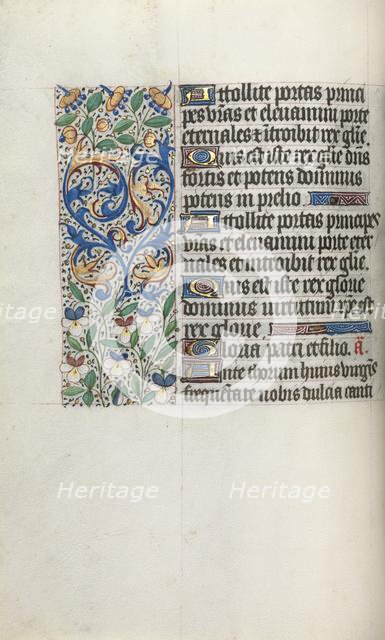 Attollite portas princi
pes vr̃as et elevamini porte
eternales & itroibit rex glie.
Quis est iste rex glie dñs
fortis et potens dominus
potens in prelio
Attollite portas principes
vr̃as et elevamini porte eter
nales et itroibit rex glie.
Quis est iste rex glorie
dominus virtutum ip̃e est
rex glorie
Gloria patri et filio. añ.
Ante thorum huius virgis
frequẽtate nobis dulcia canti
Heritage
Heritage
Heritage
Heritage